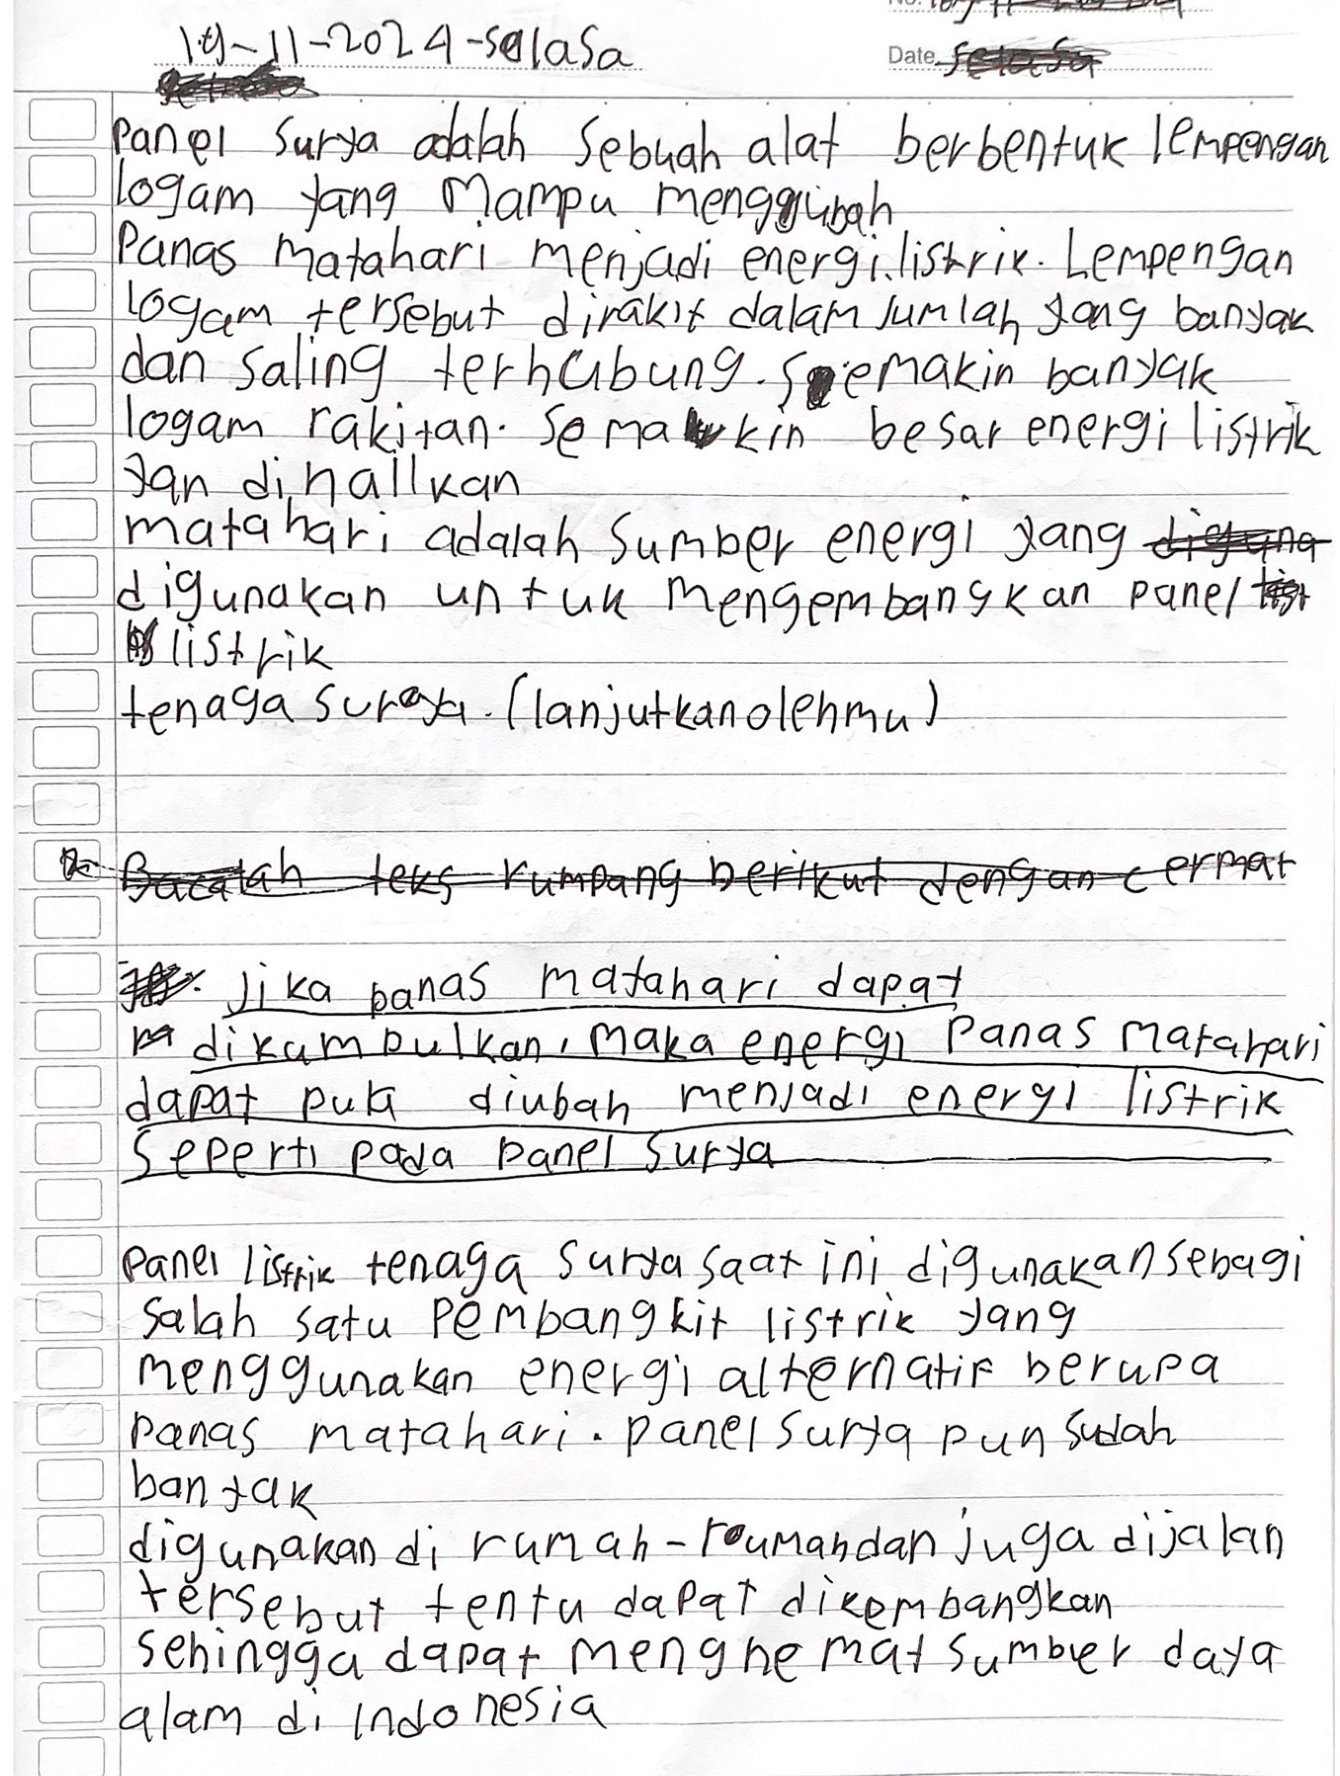 19-11-2024-selasa
Date. selasa
panel surya adalah sebuah alat berbentuk lempengan
logam yang mampu menggubah
Panas matahari menjadi energi.listrik. Lempengan
logam tersebut dirakit dalam jumlah yang banyak
dan saling terhubung. semakin banyak
logam rakitan. semakin besar energi listrik
yan dihallkan
matahari adalah sumber energi yang diguna
digunakan untuk mengembangkan panel list
listrik
tenaga surya. (lanjutkanolehmu)
Bacalah teks rumpang berikut dengan cermat
Jika panas matahari dapat
dikumpulkan, maka energi panas matahari
dapat pula diubah menjadi energi listrik
seperti pada panel surya
panel listrik tenaga surya saat ini digunakan sebagi
salah satu pembangkit listrik yang
menggunakan energi alternatif berupa
panas matahari. panel surya pun sudah
banyak
digunakan di rumah-roumahdan juga dijalan
tersebut tentu dapat dikembangkan
sehingga dapat menghemat sumber daya
alam di indonesia